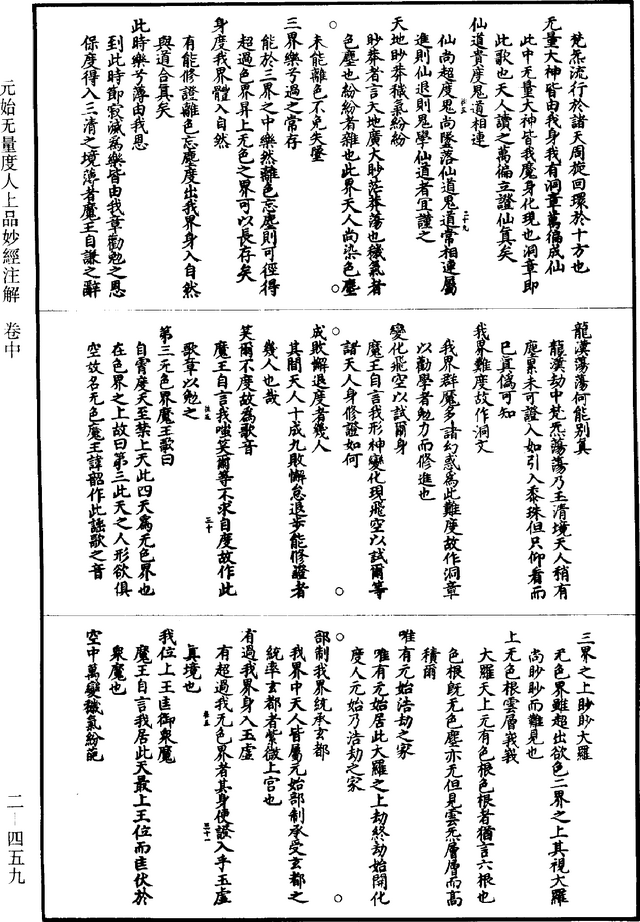 梵炁流行於諸天周旋回環於十方也
无量大神皆由我身我有洞章萬徧成仙
此中无量大神皆我魔身化現也洞章即
此歌也天人讀之萬徧立證仙真矣
仙道貴度鬼道相連
仙尚超度鬼尚墜落仙道鬼道常相連屬
二十九
進則仙退則鬼學仙道者宜謹之
天地眇莽穢氣紛紛
眇莽者言天地廣大眇茫莽蕩也穢氣者
色塵也紛紛者雜也此界天人尚染色塵
未能離色不免失墜
三界樂兮過之常存
能於三界之中樂然離色忘塵則可徑得
超過色界昇上无色之界可以長存矣
身度我界體入自然
有能修證離色忘塵度出我界身入自然
與道合真矣
此時樂兮薄由我恩
到此時節寂滅為樂皆由我章勸勉之恩
保度得入三清之境薄者魔王自謙之辭
龍漢蕩蕩何能別真
龍漢劫中梵炁蕩蕩乃玉清境天人稍有
塵累未可證入如引入黍珠但只仰看而
已真僞可知
我界難度故作洞文
我界群魔多諸幻惑為此難度故作洞章
以勸學者勉力而修進也
變化飛空以試爾身
魔王自言我形神變化現飛空以試爾等
諸天人身修證如何
成敗懈退度者幾人
其間天人十成九敗懈怠退步能修證者
幾人也哉
笑爾不度故為歌音
魔王自言我嗤笑爾等不求自度故作此
三十
歌章以勉之
第三无色界魔王歌曰
自霄度天至禁上天此四天為无色界也
在色界之上故曰第三此天之人形欲俱
空故名无色魔王諱韶作此謠歌之音
三界之上眇眇大羅
无色界雖超出欲色二界之上其視大羅
尚眇眇而難見也
上无色根雲層峩峩
大羅天上元有色根色根者猶言六根也
色根既无色塵亦无但見雲炁層層而高
積爾
唯有元始浩劫之家
唯有元始居此大羅之上劫終劫始開化
度人元始乃浩劫之家
部制我界統承玄都
我界中天人皆屬元始部制承受玄都之
統率玄都者紫微上宮也
有過我界身入玉虛
有超過我无色界者其身便證入乎玉虛
三十一
真境也
我位上王匡御衆魔
魔王自言我居此天最上王位而匡伏於
衆魔也
空中萬變穢氣紛葩
元始无量度人上品妙經注解　卷中
二—四五九